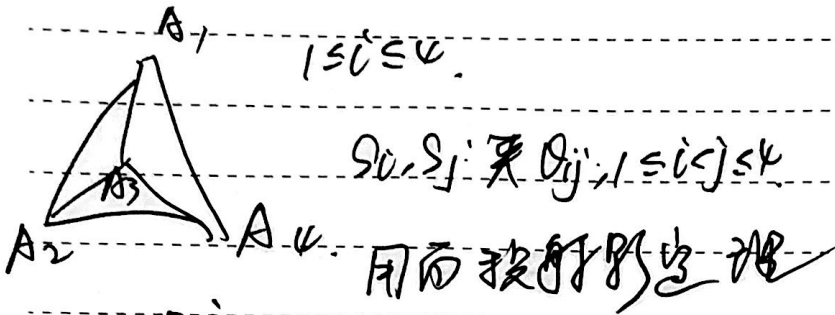 A₁
1≤i≤4.
Si, Sj 夹 θij, 1≤i<j≤4.
A₃
A₂
A₄.
用面积射影定理